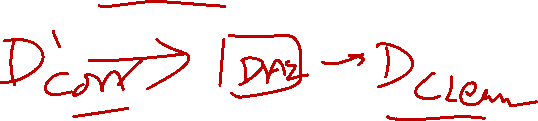 D'corr → DAE → Dclean